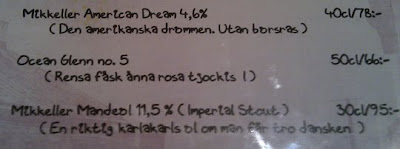 Mikkeller American Dream 4,6% 40cl/78:-
(Den amerikanska drömmen. Utan börsras)
Ocean Glenn no. 5 50cl/66:-
(Rensa fåsk ånna rosa tjockis!)
Mikkeller Mandeöl 11,5% (Imperial Stout) 30cl/95:-
(En riktig karlakarls öl om man får tro dansken.)